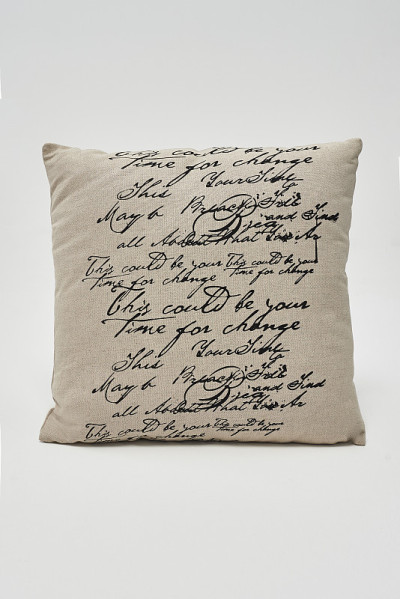 This could be your
Time for change
This Your Time
May b Break Free
and Find
all About What You Ar
This could be your This could be your
Time for change Time for change
This could be your
Time for change
This Your Time
May b Break Free
and Find
all About What You Ar
This could be your This could be your
Time for change Time for change